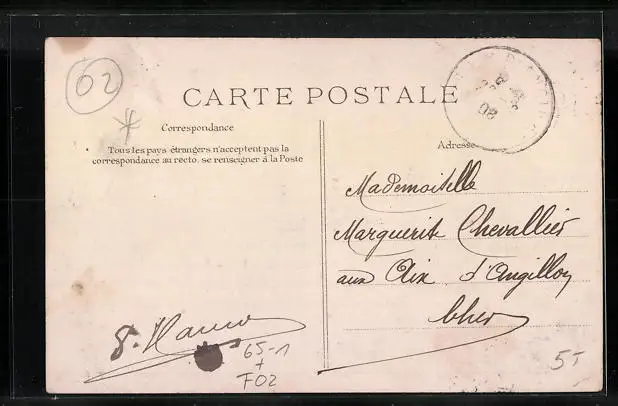 62
CARTE POSTALE
Correspondance
Tous les pays étrangers n'acceptent pas la
correspondance au recto. se renseigner à la Poste
Adresse
Mademoiselle
Marguerite Chevallier
aux Aix d'Angillon
Cher
65-1
+
F02
5-